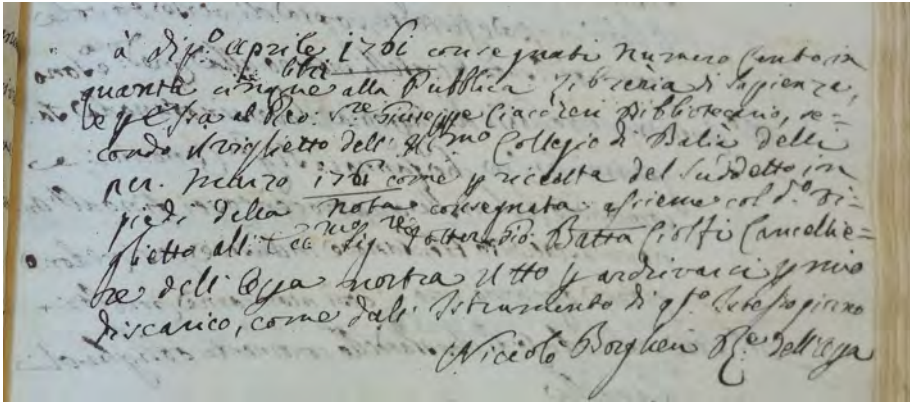 à dì p.º Aprile 1761 consegnati numero Cento cin
quanta cinque libri alla Pubblica Libreria di Sapienza,
e al Giuseppe Ciaccheri Bibliotecario, se=
condo il viglietto dell' Ill.mo Collegio di Balia delli
Marzo 1761 come ricevuta del Suddetto in
piedi della nota consegnata assieme col d.º Vi=
glietto all' Sig.re Batta Ciolfi Cancellie=
re dell' nostra il tto archivarci mio
discarico, come dall' Istrumento di q.sto Istesso giorno
Niccolò Borghesi dell'